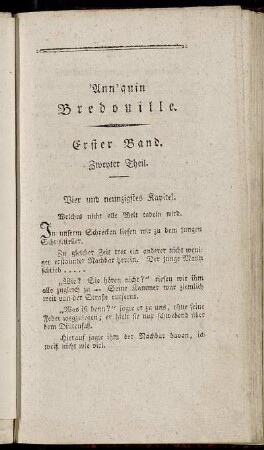 'Ann'quin
Bredouille.
Erster Band.
Zweyter Theil.
Vier und neunzigstes Kapitel.
Welches nicht alle Welt tadeln wird.
In unserm Schrecken liefen wir zu dem jungen
Schriftsteller.
Zu gleicher Zeit trat ein anderer nicht weni-
ger erstaunter Nachbar herein. Der junge Mann
schrieb . . . . .
„Wie? Sie hören nicht?" riefen wir ihm
alle zugleich zu — Seine Kammer war ziemlich
weit von der Straße entfernt.
„Was ist denn?" sagte er zu uns, ohne seine
Feder wegzulegen; er hielt sie nur schwebend über
dem Dintenfaß.
Hierauf sagte ihm der Nachbar davon, ich
weiß nicht wie viel.